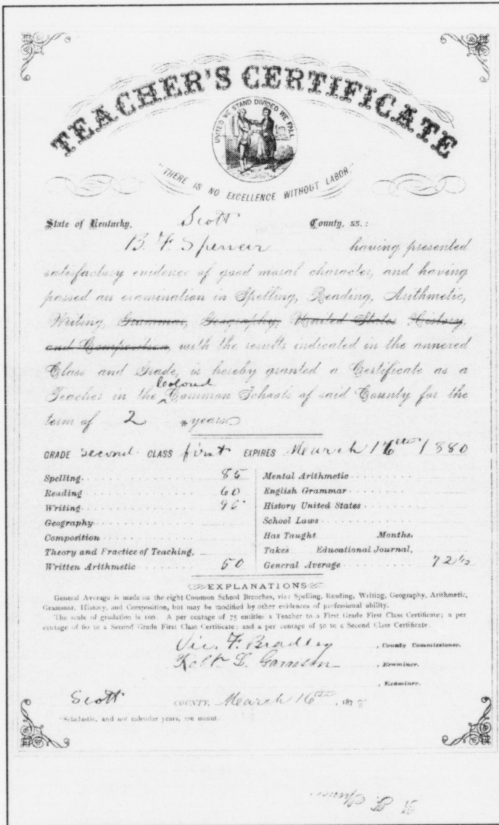 TEACHER'S CERTIFICATE
UNITED WE STAND DIVIDED WE FALL
"THERE IS NO EXCELLENCE WITHOUT LABOR"
State of Kentucky, Scott County, ss.:
B. F. Spencer having presented
satisfactory evidence of good moral character, and having
passed an examination in Spelling, Reading, Arithmetic,
Writing, Grammar, Geography, United States History,
and Composition, with the results indicated in the annexed
Class and Grade, is hereby granted a Certificate as a
Teacher in the Colored Common Schools of said County for the
term of 2 *years
GRADE second CLASS first EXPIRES March 16 1880
Spelling 85
Reading 60
Writing 95
Geography
Composition
Theory and Practice of Teaching
Written Arithmetic 50
Mental Arithmetic
English Grammar
History United States
School Laws
Has Taught Months.
Takes Educational Journal,
General Average 72 1/2
EXPLANATIONS
General Average is made on the eight Common School Branches, viz: Spelling, Reading, Writing, Geography, Arithmetic,
Grammar, History, and Composition, but may be modified by other evidences of professional ability.
The scale of gradation is 100. A per centage of 75 entitles a Teacher to a First Grade First Class Certificate; a per
centage of 60 to a Second Grade First Class Certificate; and a per centage of 50 to a Second Class Certificate.
F. Bradley, County Commissioner.
Robt. Garrison, Examiner.
, Examiner.
Scott COUNTY, March 16th, 187
*Scholastic, and not calendar years, are meant.